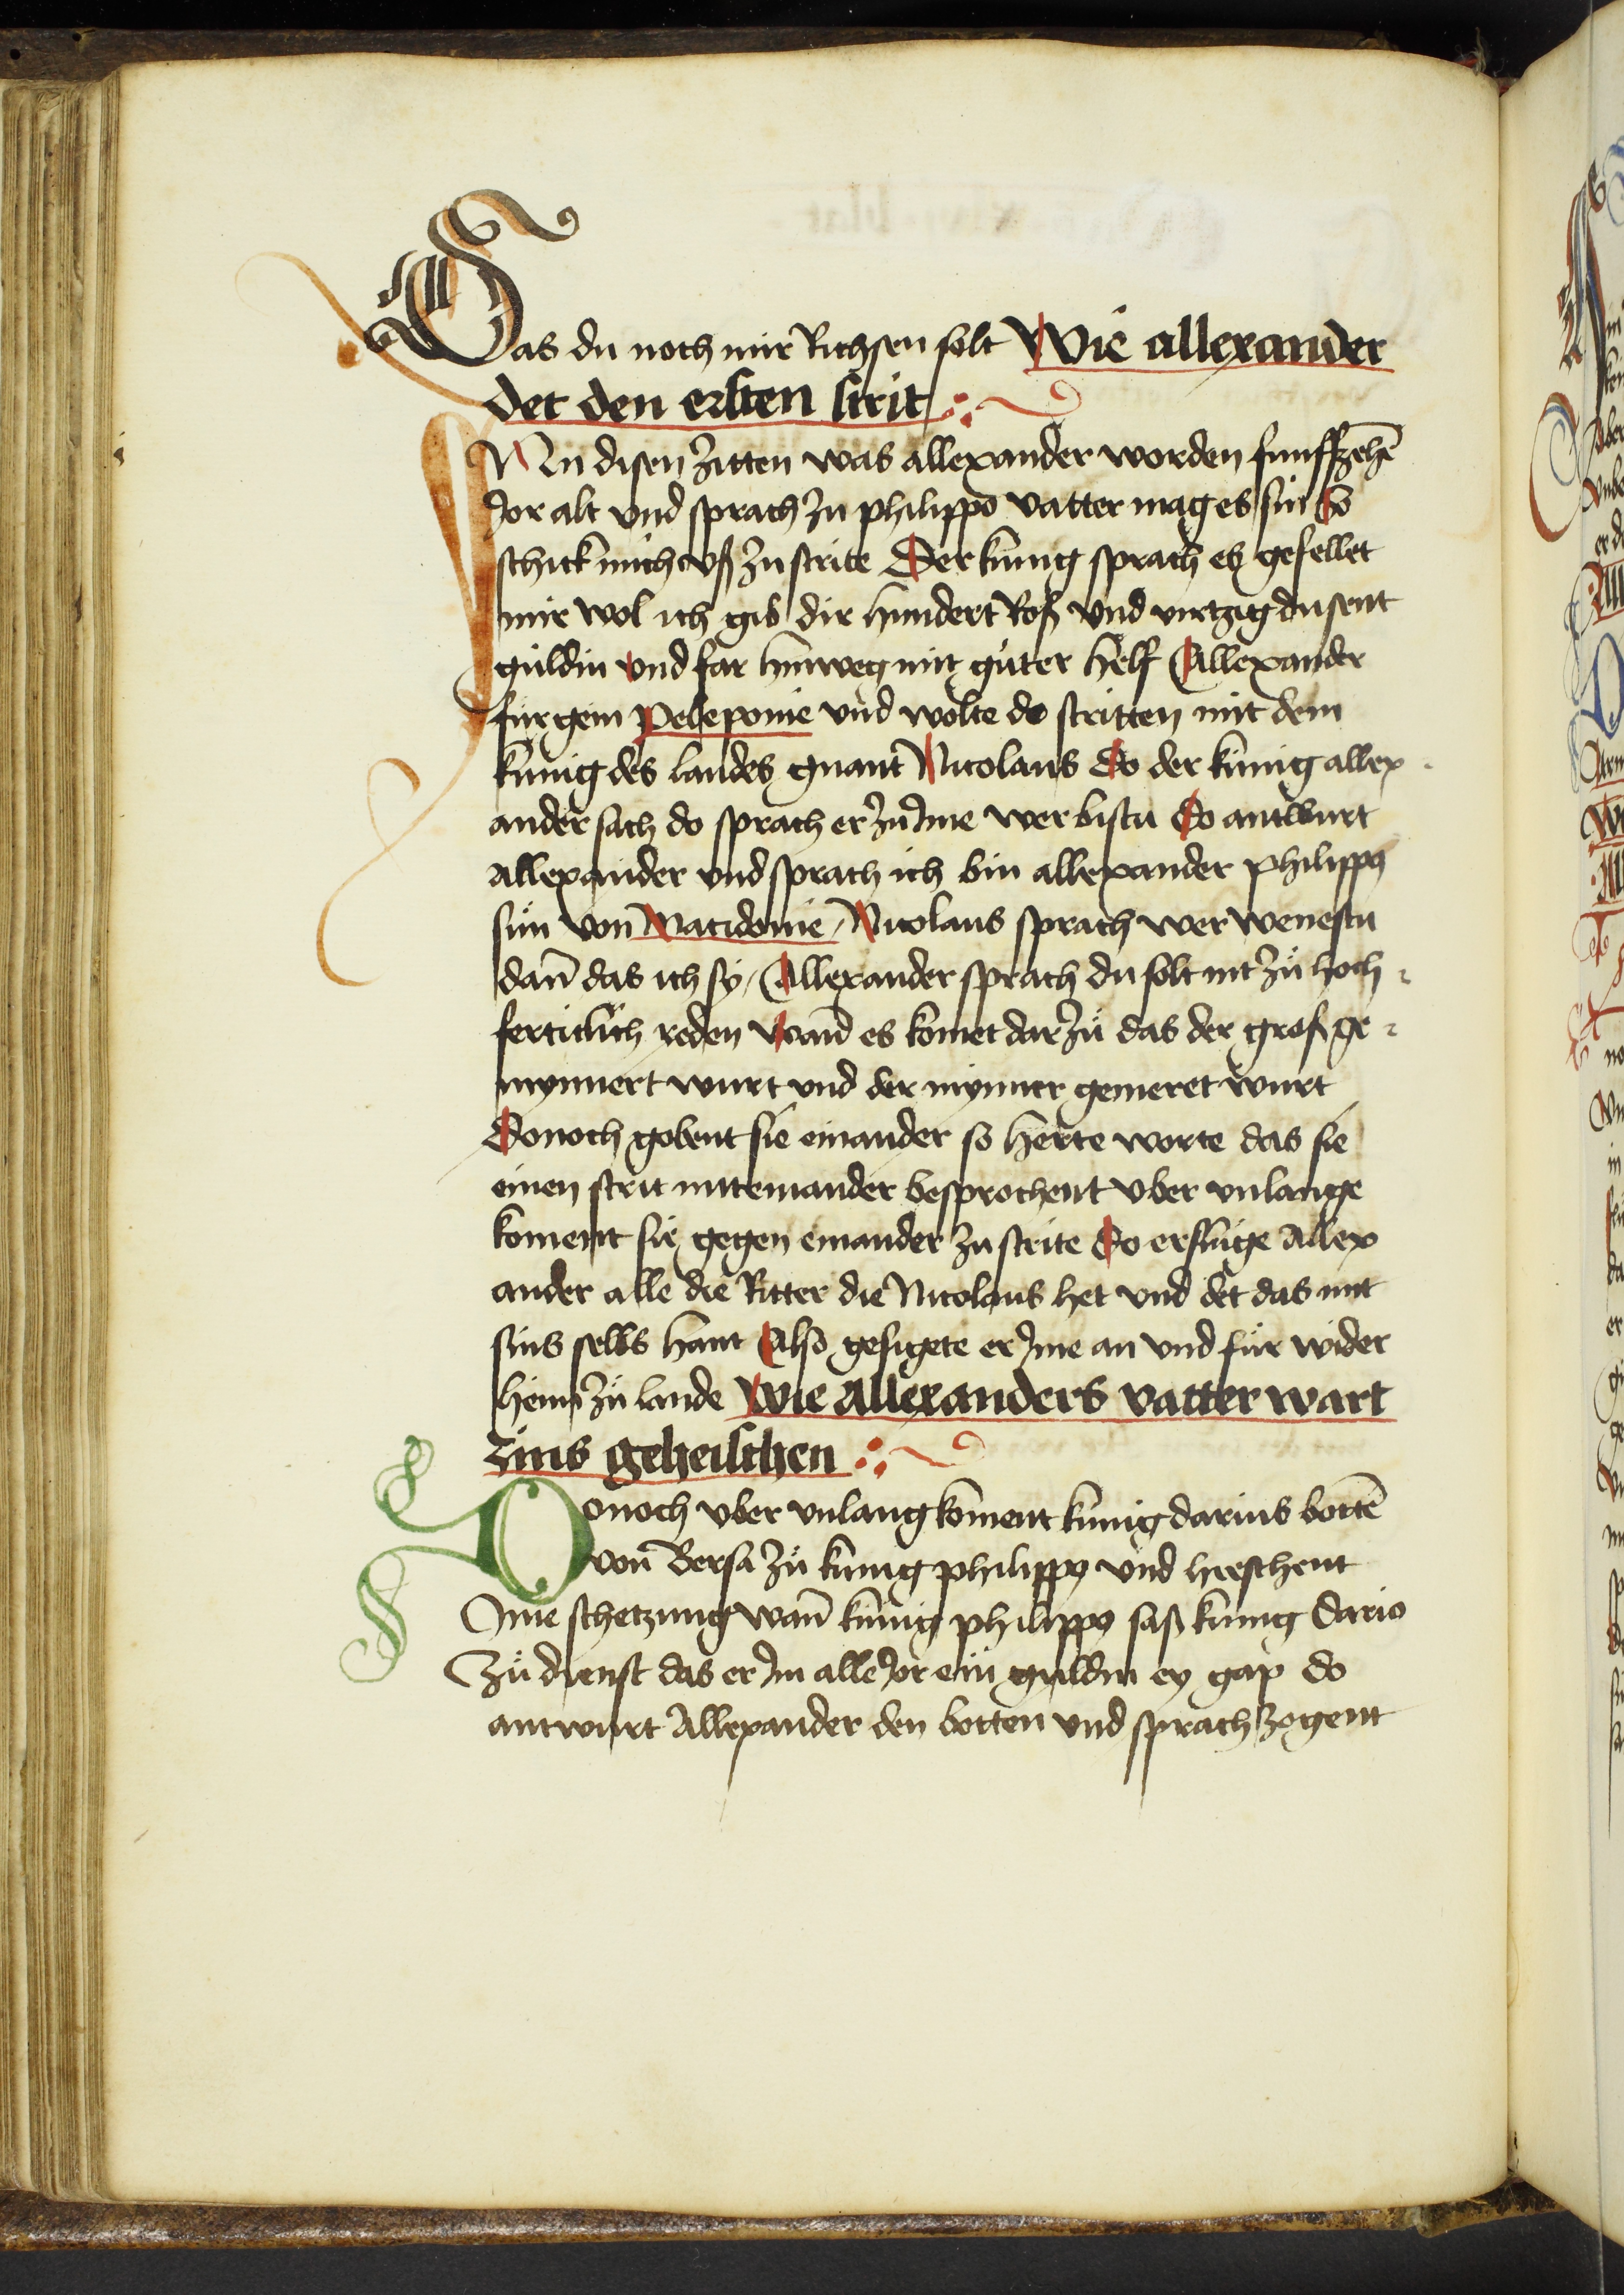 Das du noch mir Richsen solt Wie allexander
det den ersten strit
IN disen zitten was allexander worden funffzehē
Jor alt vnd sprach zu philippo vatter mag es sin So
schick mich vß zu strite Der kunig sprach es gefellet
mir wol ich gib dir hundert Roß vnd viertzig dusent
guldin vnd far hinweg mit guter helf Allexander
fur gein Peleponie vnd wolte do stritten mit dem
kunig des landes gnant Nicolaus Do der kunig allex
ander sach do sprach er zu Jme wer bistu Do antwurt
Allexander vnd sprach ich bin allexander philippꝰ
sun von Macidonie / Nicolaus sprach wer wenestu
dan̄ das ich sy / Allexander sprach du solt nit zu hoch
fertiklich reden wan̄ es komet dar zu das der groß ge
mynnert wurt vnd der mynner gemeret wurt
Donoch gobent sie einander so herte worte das sie
einen strit mit einander besprochent vber vnlange
koment sie gegen einander zu strite Do erslug Allex
ander alle die Ritter die Nicolaus het vnd det das mit
sins selbs hant Also gesigete er Jme an vnd fur wider
heim zu lande Wie Allexanders vatter wart
zins geheischen
Donoch vber vnlang koment kunig darius bottē
von Bersa zu kunig philippꝰ vnd hieschent
Jme schetzung wan̄ kunig philippꝰ saß kunig Dario
zu dienst das er Jm alle Jor ein guldin ey gap do
antwurt Allexander den botten vnd sprach zogent